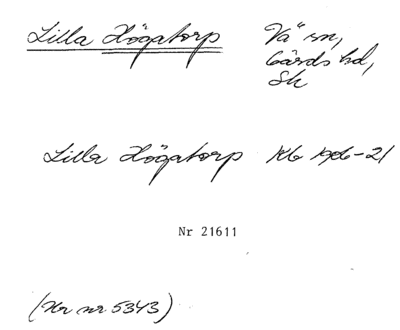 Lilla Högatorp Vä sn,
Gärds hd,
Sk
Lilla Högatorp Kb 1906-21
Nr 21611
(Hr nr 5343)